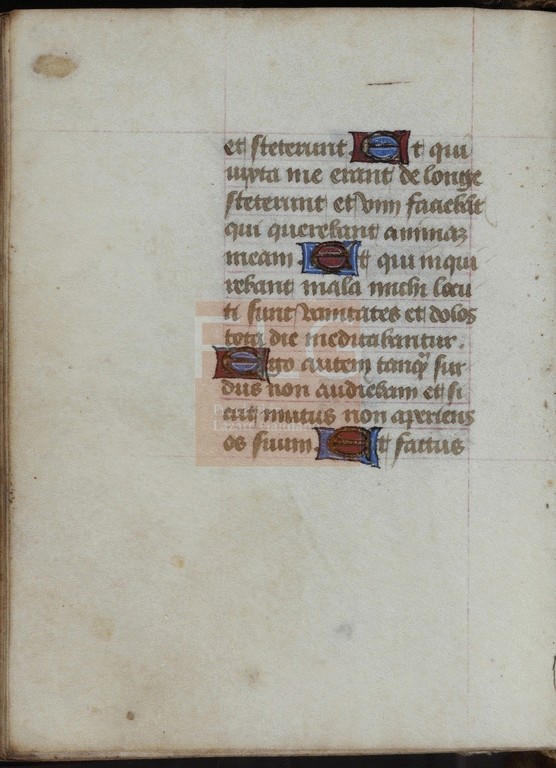 et steterunt. Et qui
iuxta me erant de longe
steterunt et vim faciebãt
qui querebant animaz
meam. Et qui inqui
rebant mala michi locu
ti sunt vanitates et dolos
tota die meditabantur.
Ego autem tanq̃ sur
dus non audiebam et si
cut mutus non aperiens
os suum. Et factus
FLG